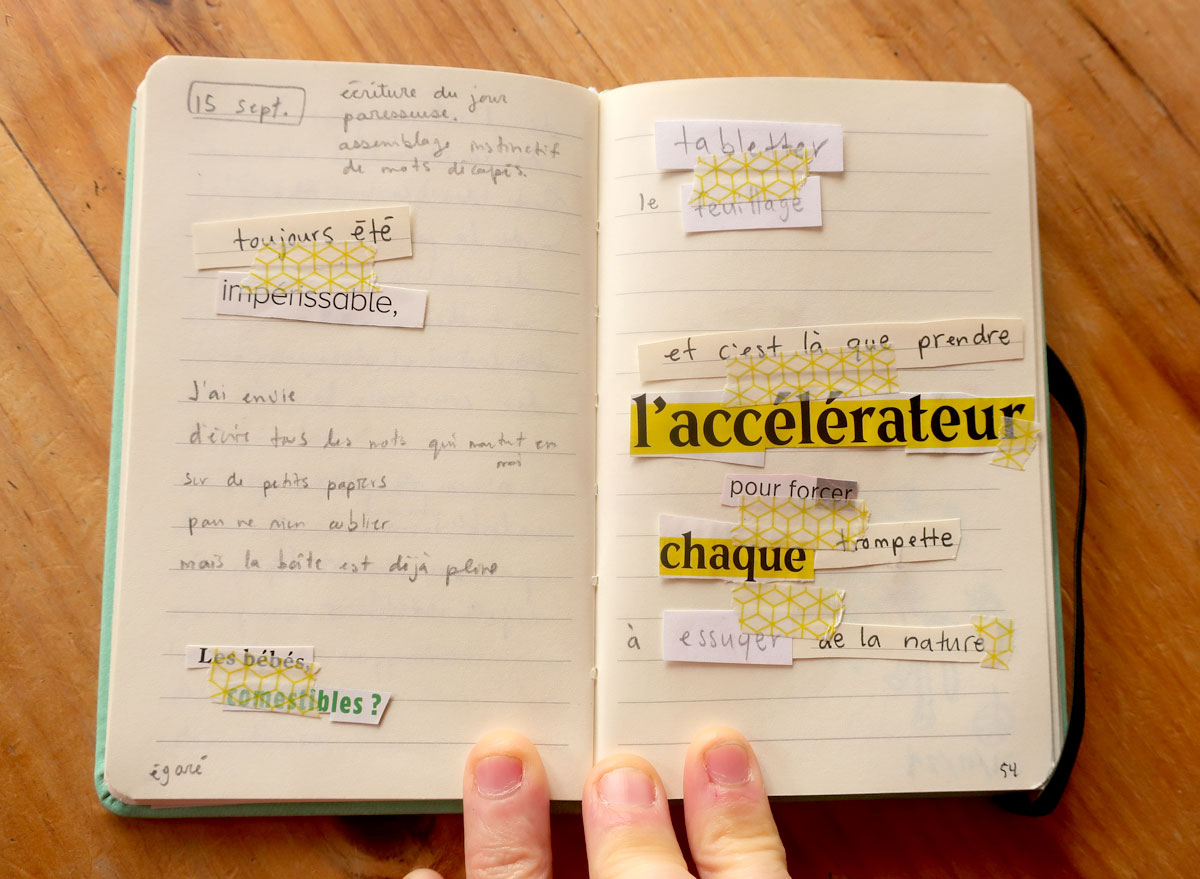 15 sept.
écriture du jour
paresseuse.
assemblage instinctif
de mots décapés.
toujours été
impérissable,
J'ai envie
d'écrire tous les mots qui en
sur de petits papiers
pour ne rien oublier
mais la boîte est déjà pleine
Les bébés,
comestibles ?
égaré
tabletter
le feuillage
et c'est là que prendre
l'accélérateur
pour forcer
chaque trompette
à essuyer de la nature
54